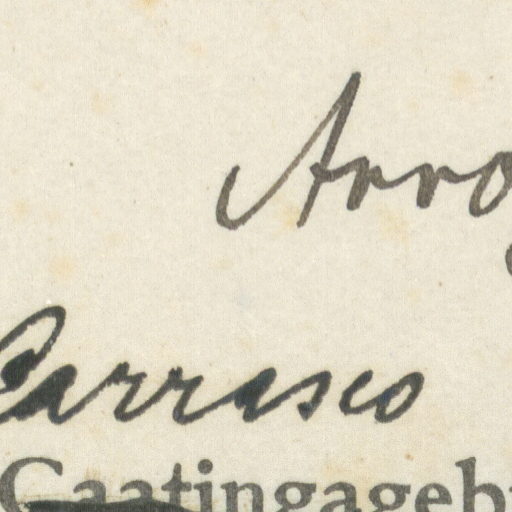 Arro
Carrasco
Caatingageb